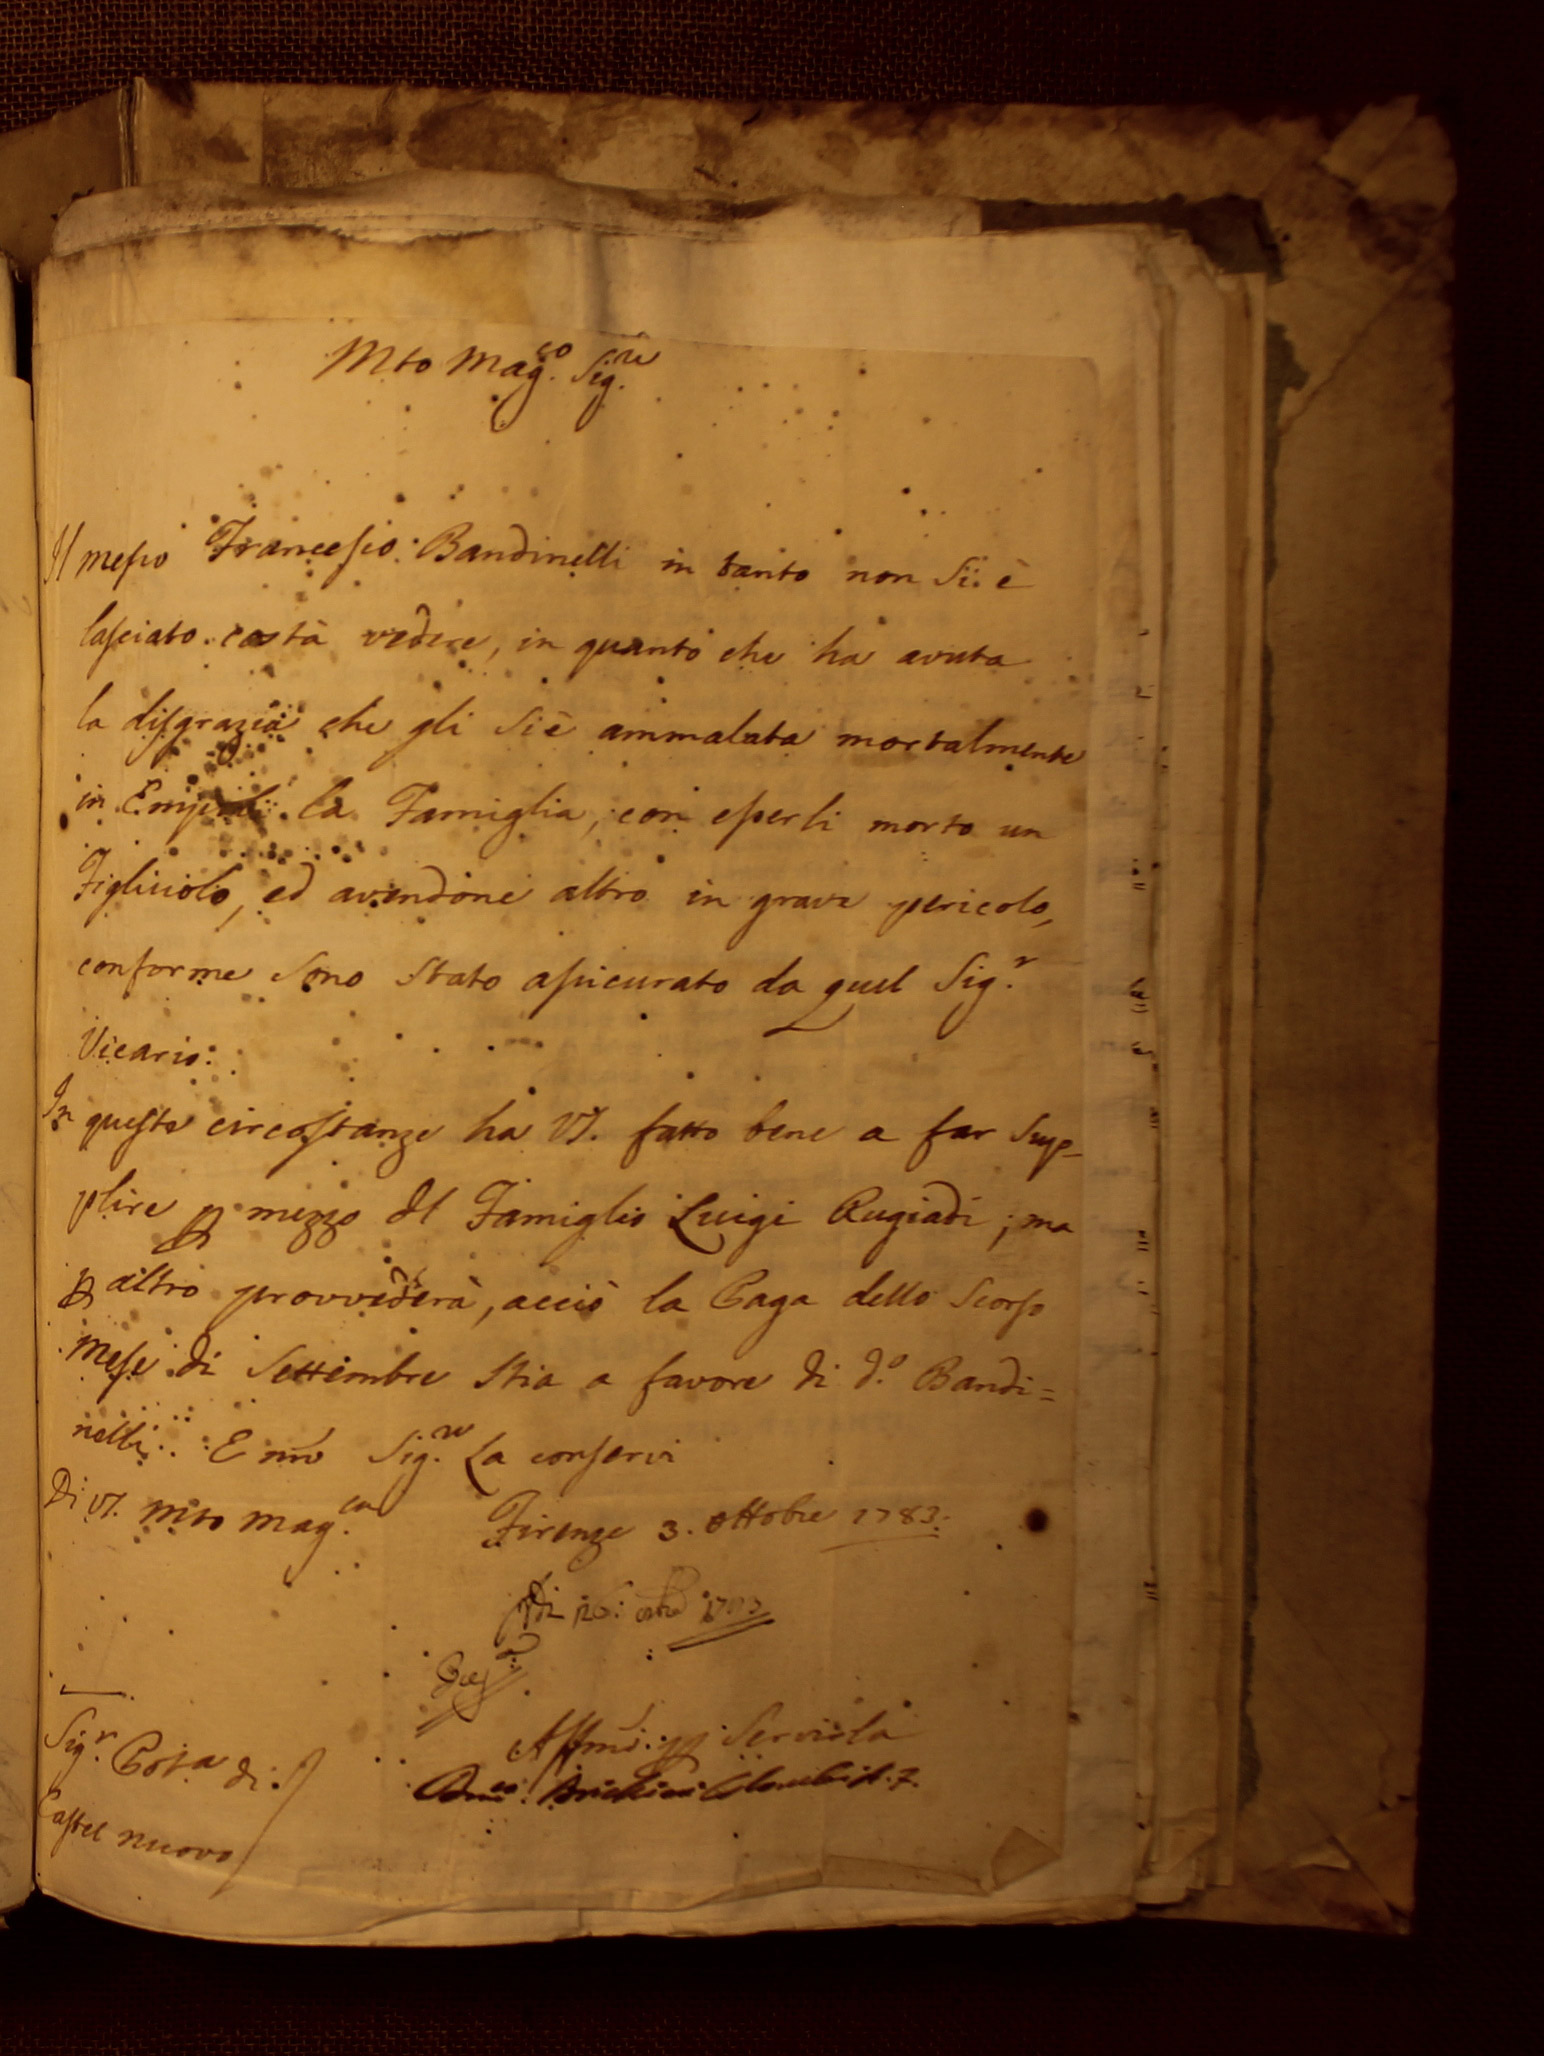 Mto Mag.co Sig.re
Il messo Francesco Bandinelli in tanto non si è
lasciato costà vedere, in quanto che ha avuta
la disgrazia che gli si è ammalata mortalmente
in Empoli la Famiglia, con esserli morto un
Figliuolo, ed avendone altro in grave pericolo,
conforme sono stato assicurato da quel Sig.r
Vicario.
In queste circostanze ha VS. fatto bene a far sup-
plire p mezzo del Famiglio Luigi Rugiadi; ma
p altro provvederà, acciò la Paga dello scorso
mese di Settembre stia a favore di d.o Bandi=
nelli. E nro Sig.re La conservi
Di VS. Mto Mag.ca Firenze 3. Ottobre 1783.
Adi 1783
Affmo p Servirla
Sig.r Potà di
Castel nuovo